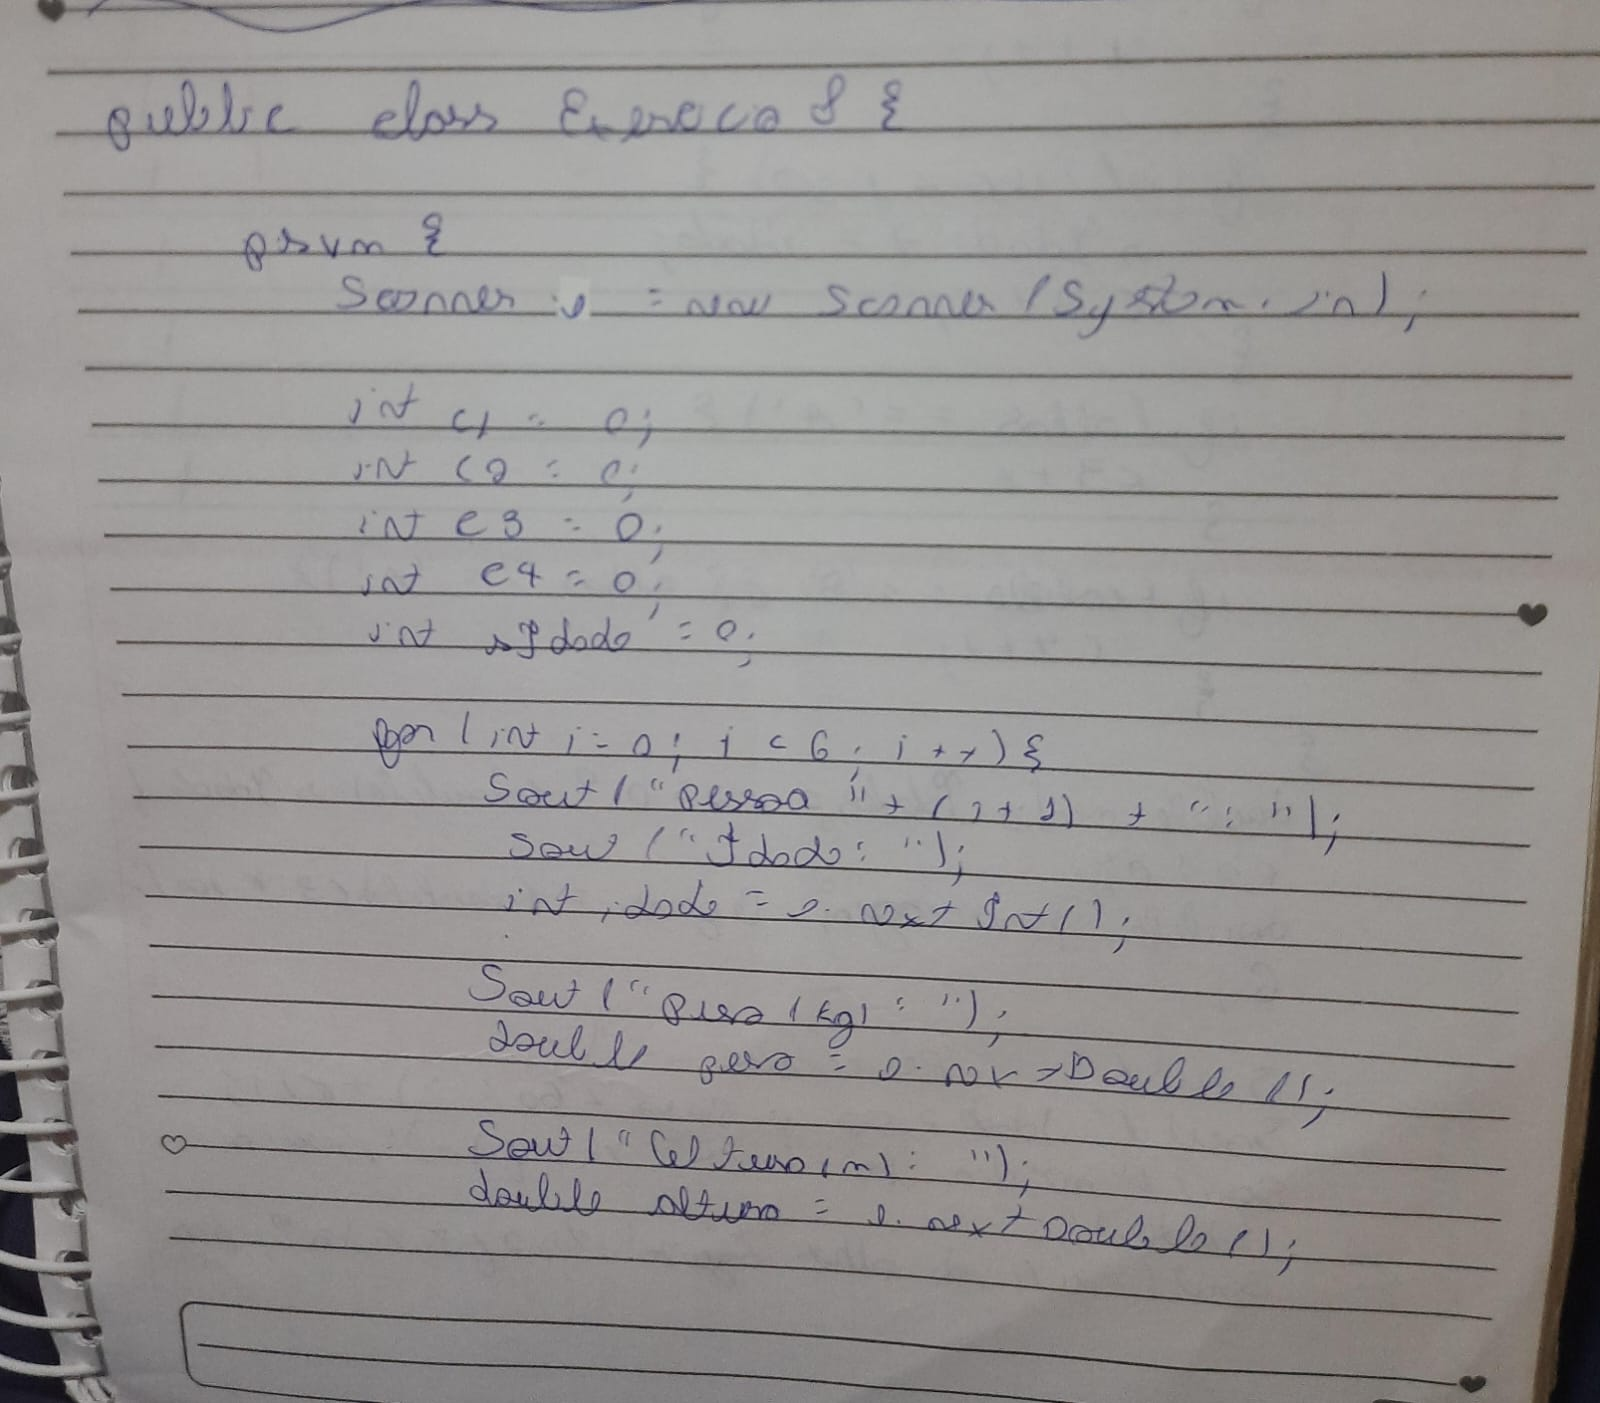 public class Exercicio 8 {
psvm {
Scanner s = new Scanner (System.in);
int c1 = 0;
int c2 = 0;
int c3 = 0;
int c4 = 0;
int sIdade = 0;
for (int i = 0; i < 6; i++) {
Sout ("pessoa " + (i+1) + ": ");
Sout ("Idade: ");
int idade = s.nextInt();
Sout ("peso (kg): ");
double peso = s.nextDouble();
Sout ("Altura (m): ");
double altura = s.nextDouble();